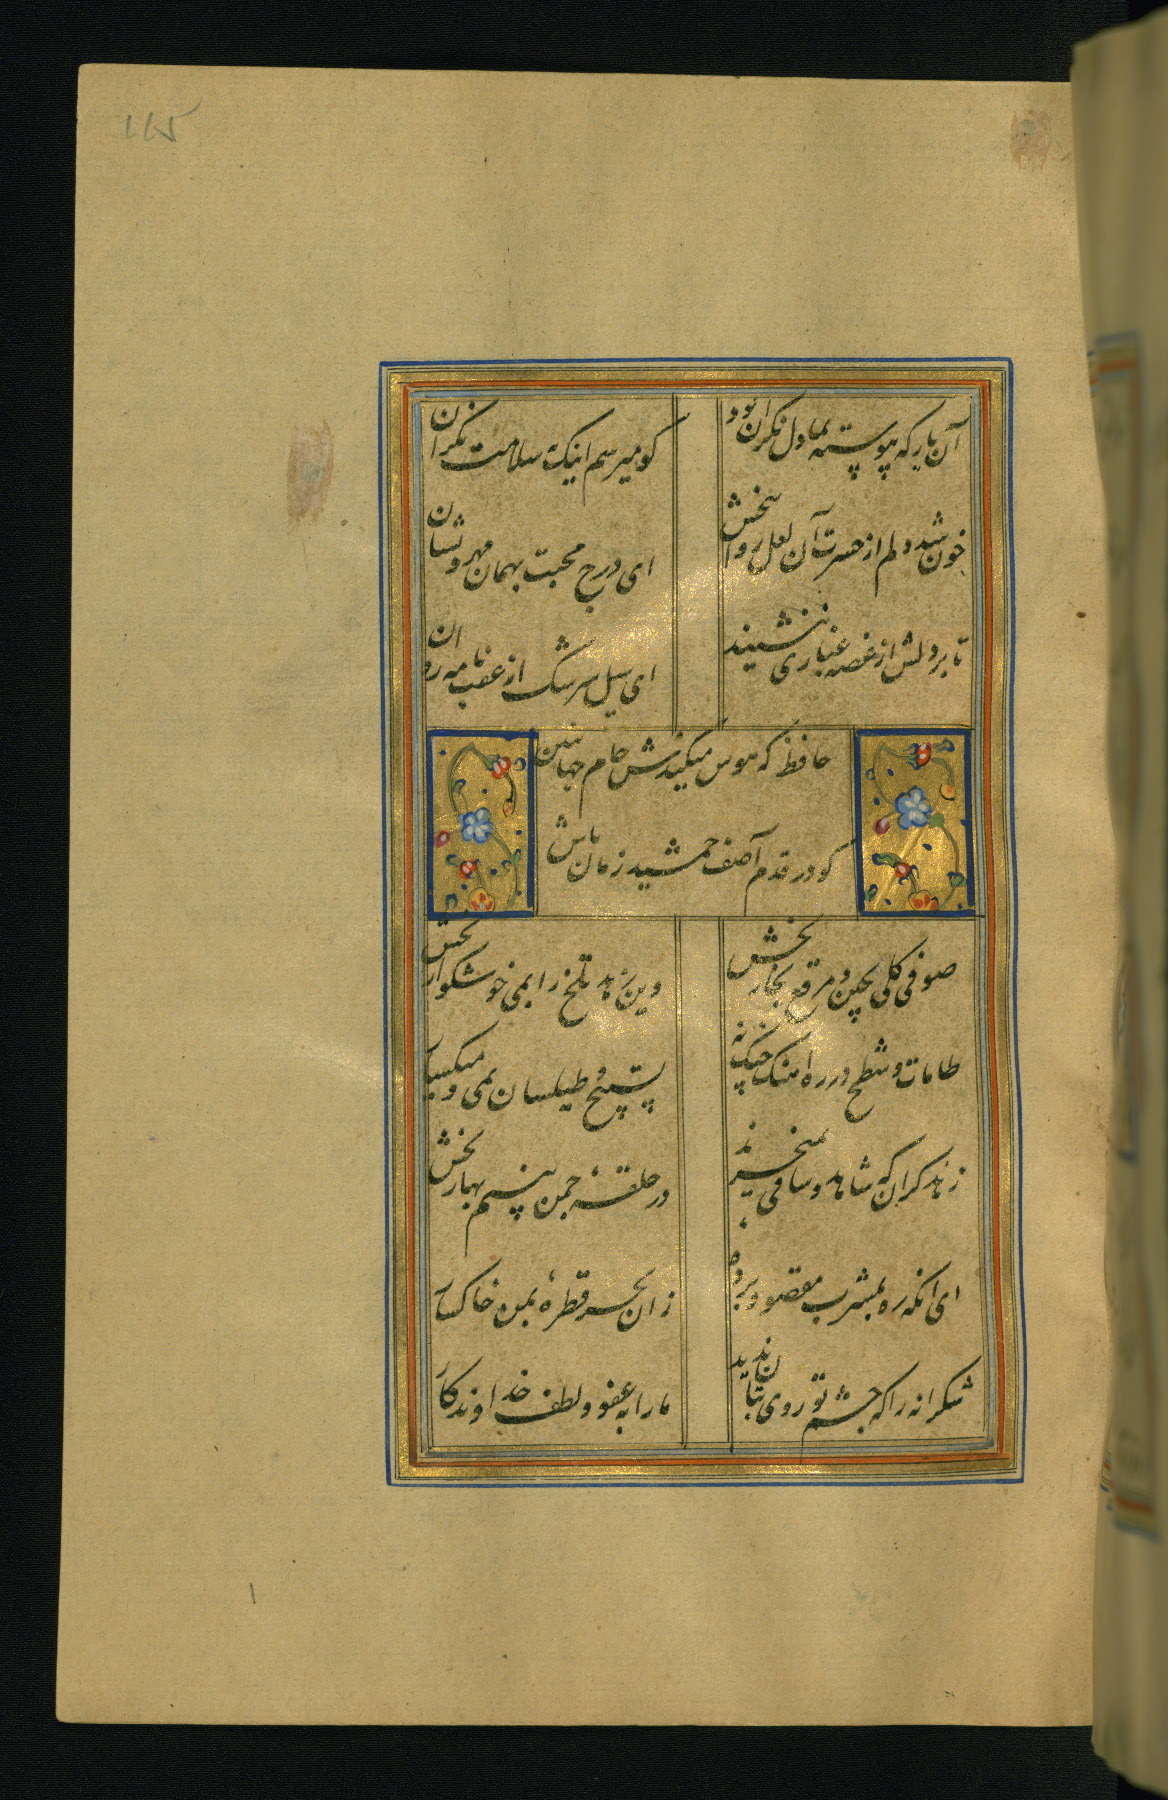 115
آن یار که پیوسته بما دل نکران بود
کو میرسم اینک سلامت نکران
خون شد دلم از حسرت آن لعل روانبخش
ای درج محبت بهمان مهر و نشان
تا بر دلش از غصه غباری ننشیند
ای سیل سرشک از عقب نامه روان
حافظ که هوس میکندش جام جهانبین
کو در قدم آصف جمشید زمان باش
صوفی کلی بچین و مرقع بخار بخش
وین زهد تلخ را بمی خوشکوار بخش
طامات و شطح در ره آهنک چنک نه
تسبیح و طیلسان بمی و میکسار
زهد کران که شاهد و ساقی نمیخرند
در حلقهٔ چمن بنسیم بهار بخش
ای آنکه ره بمشرب مقصود برده
زان بحر قطرهٔ بمن خاکسار
شکرانه را که چشم تو روی بتان ندید
ما را به عفو و لطف خداوندکار